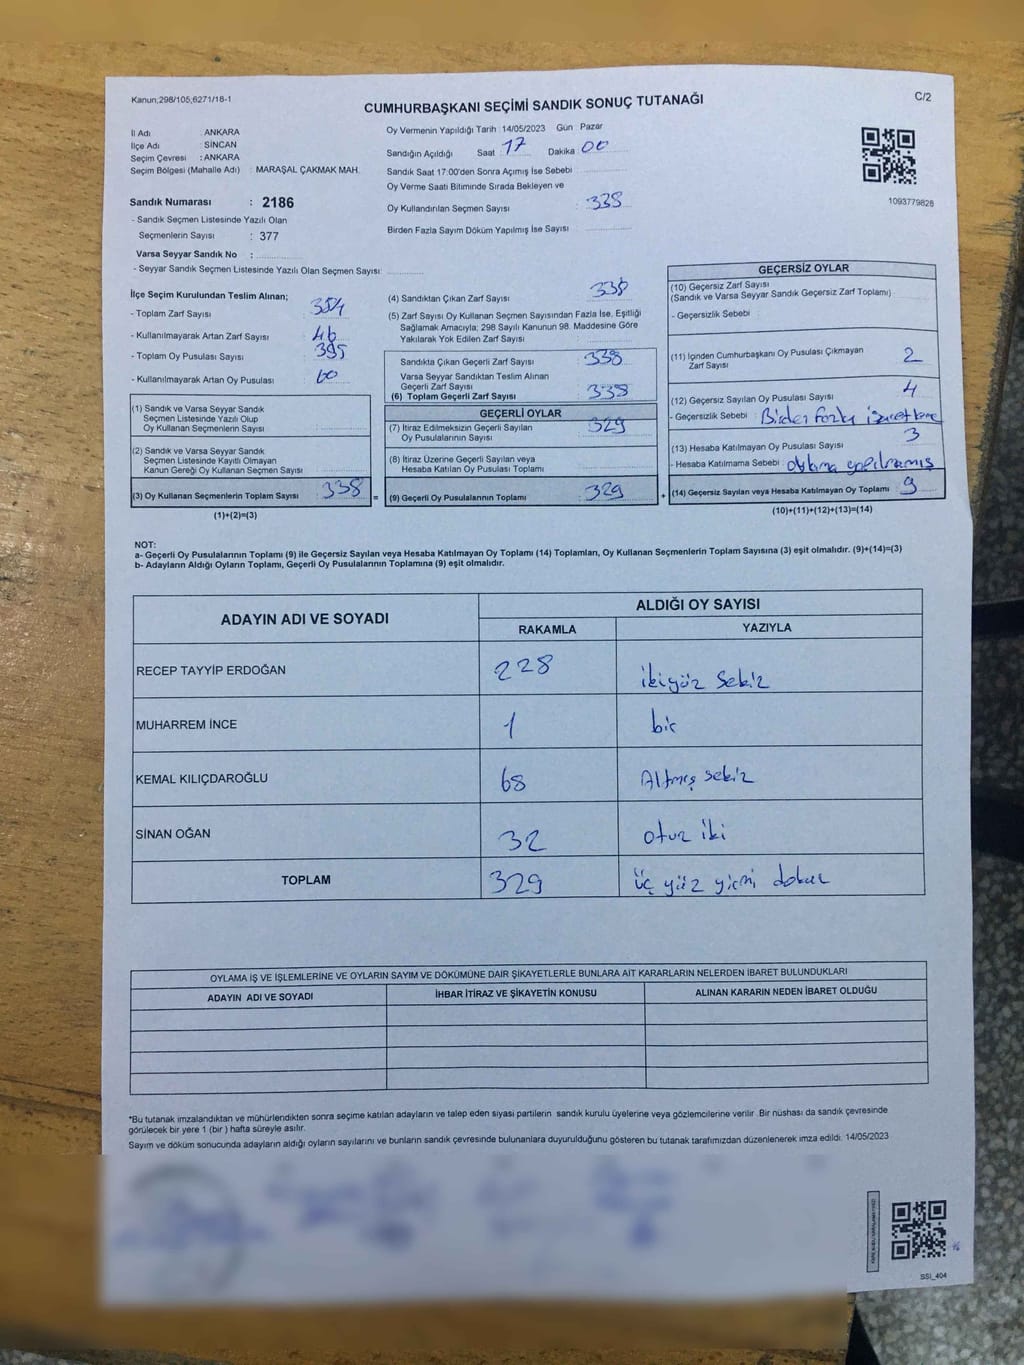 Kanun;298/105;6271/18-1
CUMHURBAŞKANI SEÇİMİ SANDIK SONUÇ TUTANAĞI
C/2
İl Adı : ANKARA
İlçe Adı : SİNCAN
Seçim Çevresi : ANKARA
Seçim Bölgesi (Mahalle Adı) : MARAŞAL ÇAKMAK MAH.
Sandık Numarası : 2186
- Sandık Seçmen Listesinde Yazılı Olan
Seçmenlerin Sayısı : 377
Varsa Seyyar Sandık No :
- Seyyar Sandık Seçmen Listesinde Yazılı Olan Seçmen Sayısı:
Oy Vermenin Yapıldığı Tarih :14/05/2023 Gün Pazar
Sandığın Açıldığı Saat : 17 Dakika : 00
Sandık Saat 17:00'den Sonra Açımış İse Sebebi :
Oy Verme Saati Bitiminde Sırada Bekleyen ve
Oy Kullandırılan Seçmen Sayısı : 338
Birden Fazla Sayım Döküm Yapılmış İse Sayısı :
1093779828
İlçe Seçim Kurulundan Teslim Alınan;
- Toplam Zarf Sayısı : 384
- Kullanılmayarak Artan Zarf Sayısı : 46
- Toplam Oy Pusulası Sayısı : 395
- Kullanılmayarak Artan Oy Pusulası : 60
(1) Sandık ve Varsa Seyyar Sandık
Seçmen Listesinde Yazılı Olup
Oy Kullanan Seçmenlerin Sayısı :
(2) Sandık ve Varsa Seyyar Sandık
Seçmen Listesinde Kayıtlı Olmayan
Kanun Gereği Oy Kullanan Seçmen Sayısı :
(3) Oy Kullanan Seçmenlerin Toplam Sayısı : 338 =
(1)+(2)=(3)
(4) Sandıktan Çıkan Zarf Sayısı : 338
(5) Zarf Sayısı Oy Kullanan Seçmen Sayısından Fazla İse, Eşitliği
Sağlamak Amacıyla; 298 Sayılı Kanunun 98. Maddesine Göre
Yakılarak Yok Edilen Zarf Sayısı :
Sandıkta Çıkan Geçerli Zarf Sayısı : 338
Varsa Seyyar Sandıktan Teslim Alınan
Geçerli Zarf Sayısı :
(6) Toplam Geçerli Zarf Sayısı : 338
GEÇERLİ OYLAR
(7) İtiraz Edilmeksizin Geçerli Sayılan
Oy Pusulalarının Sayısı : 329
(8) İtiraz Üzerine Geçerli Sayılan veya
Hesaba Katılan Oy Pusulası Toplamı :
(9) Geçerli Oy Pusulalarının Toplamı : 329 +
GEÇERSİZ OYLAR
(10) Geçersiz Zarf Sayısı
(Sandık ve Varsa Seyyar Sandık Geçersiz Zarf Toplamı) :
- Geçersizlik Sebebi :
(11) İçinden Cumhurbaşkanı Oy Pusulası Çıkmayan
Zarf Sayısı : 2
(12) Geçersiz Sayılan Oy Pusulası Sayısı : 4
- Geçersizlik Sebebi : Birden fazla
(13) Hesaba Katılmayan Oy Pusulası Sayısı : 3
- Hesaba Katılmama Sebebi : oylama yapılmamış
(14) Geçersiz Sayılan veya Hesaba Katılmayan Oy Toplamı : 9
(10)+(11)+(12)+(13)=(14)
NOT:
a- Geçerli Oy Pusulalarının Toplamı (9) ile Geçersiz Sayılan veya Hesaba Katılmayan Oy Toplamı (14) Toplamları, Oy Kullanan Seçmenlerin Toplam Sayısına (3) eşit olmalıdır. (9)+(14)=(3)
b- Adayların Aldığı Oyların Toplamı, Geçerli Oy Pusulalarının Toplamına (9) eşit olmalıdır.
ADAYIN ADI VE SOYADI
ALDIĞI OY SAYISI
RAKAMLA
YAZIYLA
RECEP TAYYİP ERDOĞAN 228 ikiyüz sekiz
MUHARREM İNCE 1 bir
KEMAL KILIÇDAROĞLU 68 Altmış sekiz
SİNAN OĞAN 32 otuz iki
TOPLAM 329 üç yüz yirmi dokuz
OYLAMA İŞ VE İŞLEMLERİNE VE OYLARIN SAYIM VE DÖKÜMÜNE DAİR ŞİKAYETLERLE BUNLARA AİT KARARLARIN NELERDEN İBARET BULUNDUKLARI
ADAYIN ADI VE SOYADI
İHBAR İTİRAZ VE ŞİKAYETİN KONUSU
ALINAN KARARIN NEDEN İBARET OLDUĞU
*Bu tutanak imzalandıktan ve mühürlendikten sonra seçime katılan adayların ve talep eden siyasi partilerin sandık kurulu üyelerine veya gözlemcilerine verilir. Bir nüshası da sandık çevresinde
görülecek bir yere 1 (bir ) hafta süreyle asılır.
Sayım ve döküm sonucunda adayların aldığı oyların sayılarını ve bunların sandık çevresinde bulunanlara duyurulduğunu gösteren bu tutanak tarafımızdan düzenlenerek imza edildi. 14/05/2023
SSI_404